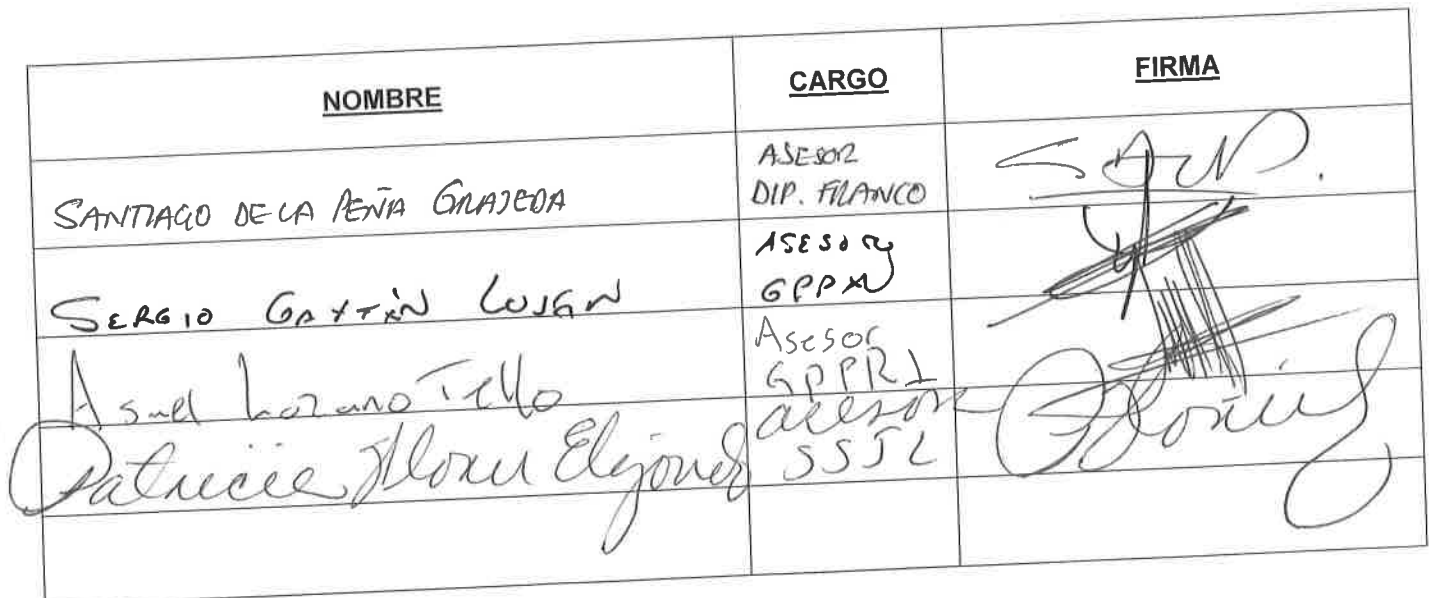 NOMBRE CARGO FIRMA
SANTIAGO DE LA PEÑA GRAJEDA
ASESOR
DIP. FRANCO
SERGIO GAYTÁN LUJAN
ASESOR
GPPAN
Lozano Tello
Asesor
GPPRI
Patricia Elizondo
asesora
SSJL